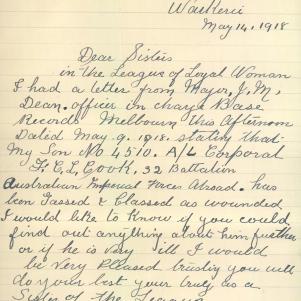 Waikerie
May 14, 1918
Dear Sisters
in the League of Loyal Woman
I had a letter from Mayor, J, M,
Dean. officer in charge Base
Records Melbourn this Afternoon
Dated May. 9. 1918. stating that
My Son No 4510. A/L Corporal
F, C, L, Cook, 32 Battalion
Australian Imperial Forces Abroad. has
been Passed & Classed as wounded
I would like to know if you could
find out anything about him further
or if he is very ill I would
be very Pleased trusting you will
do your best your truly as a
Sister of the League